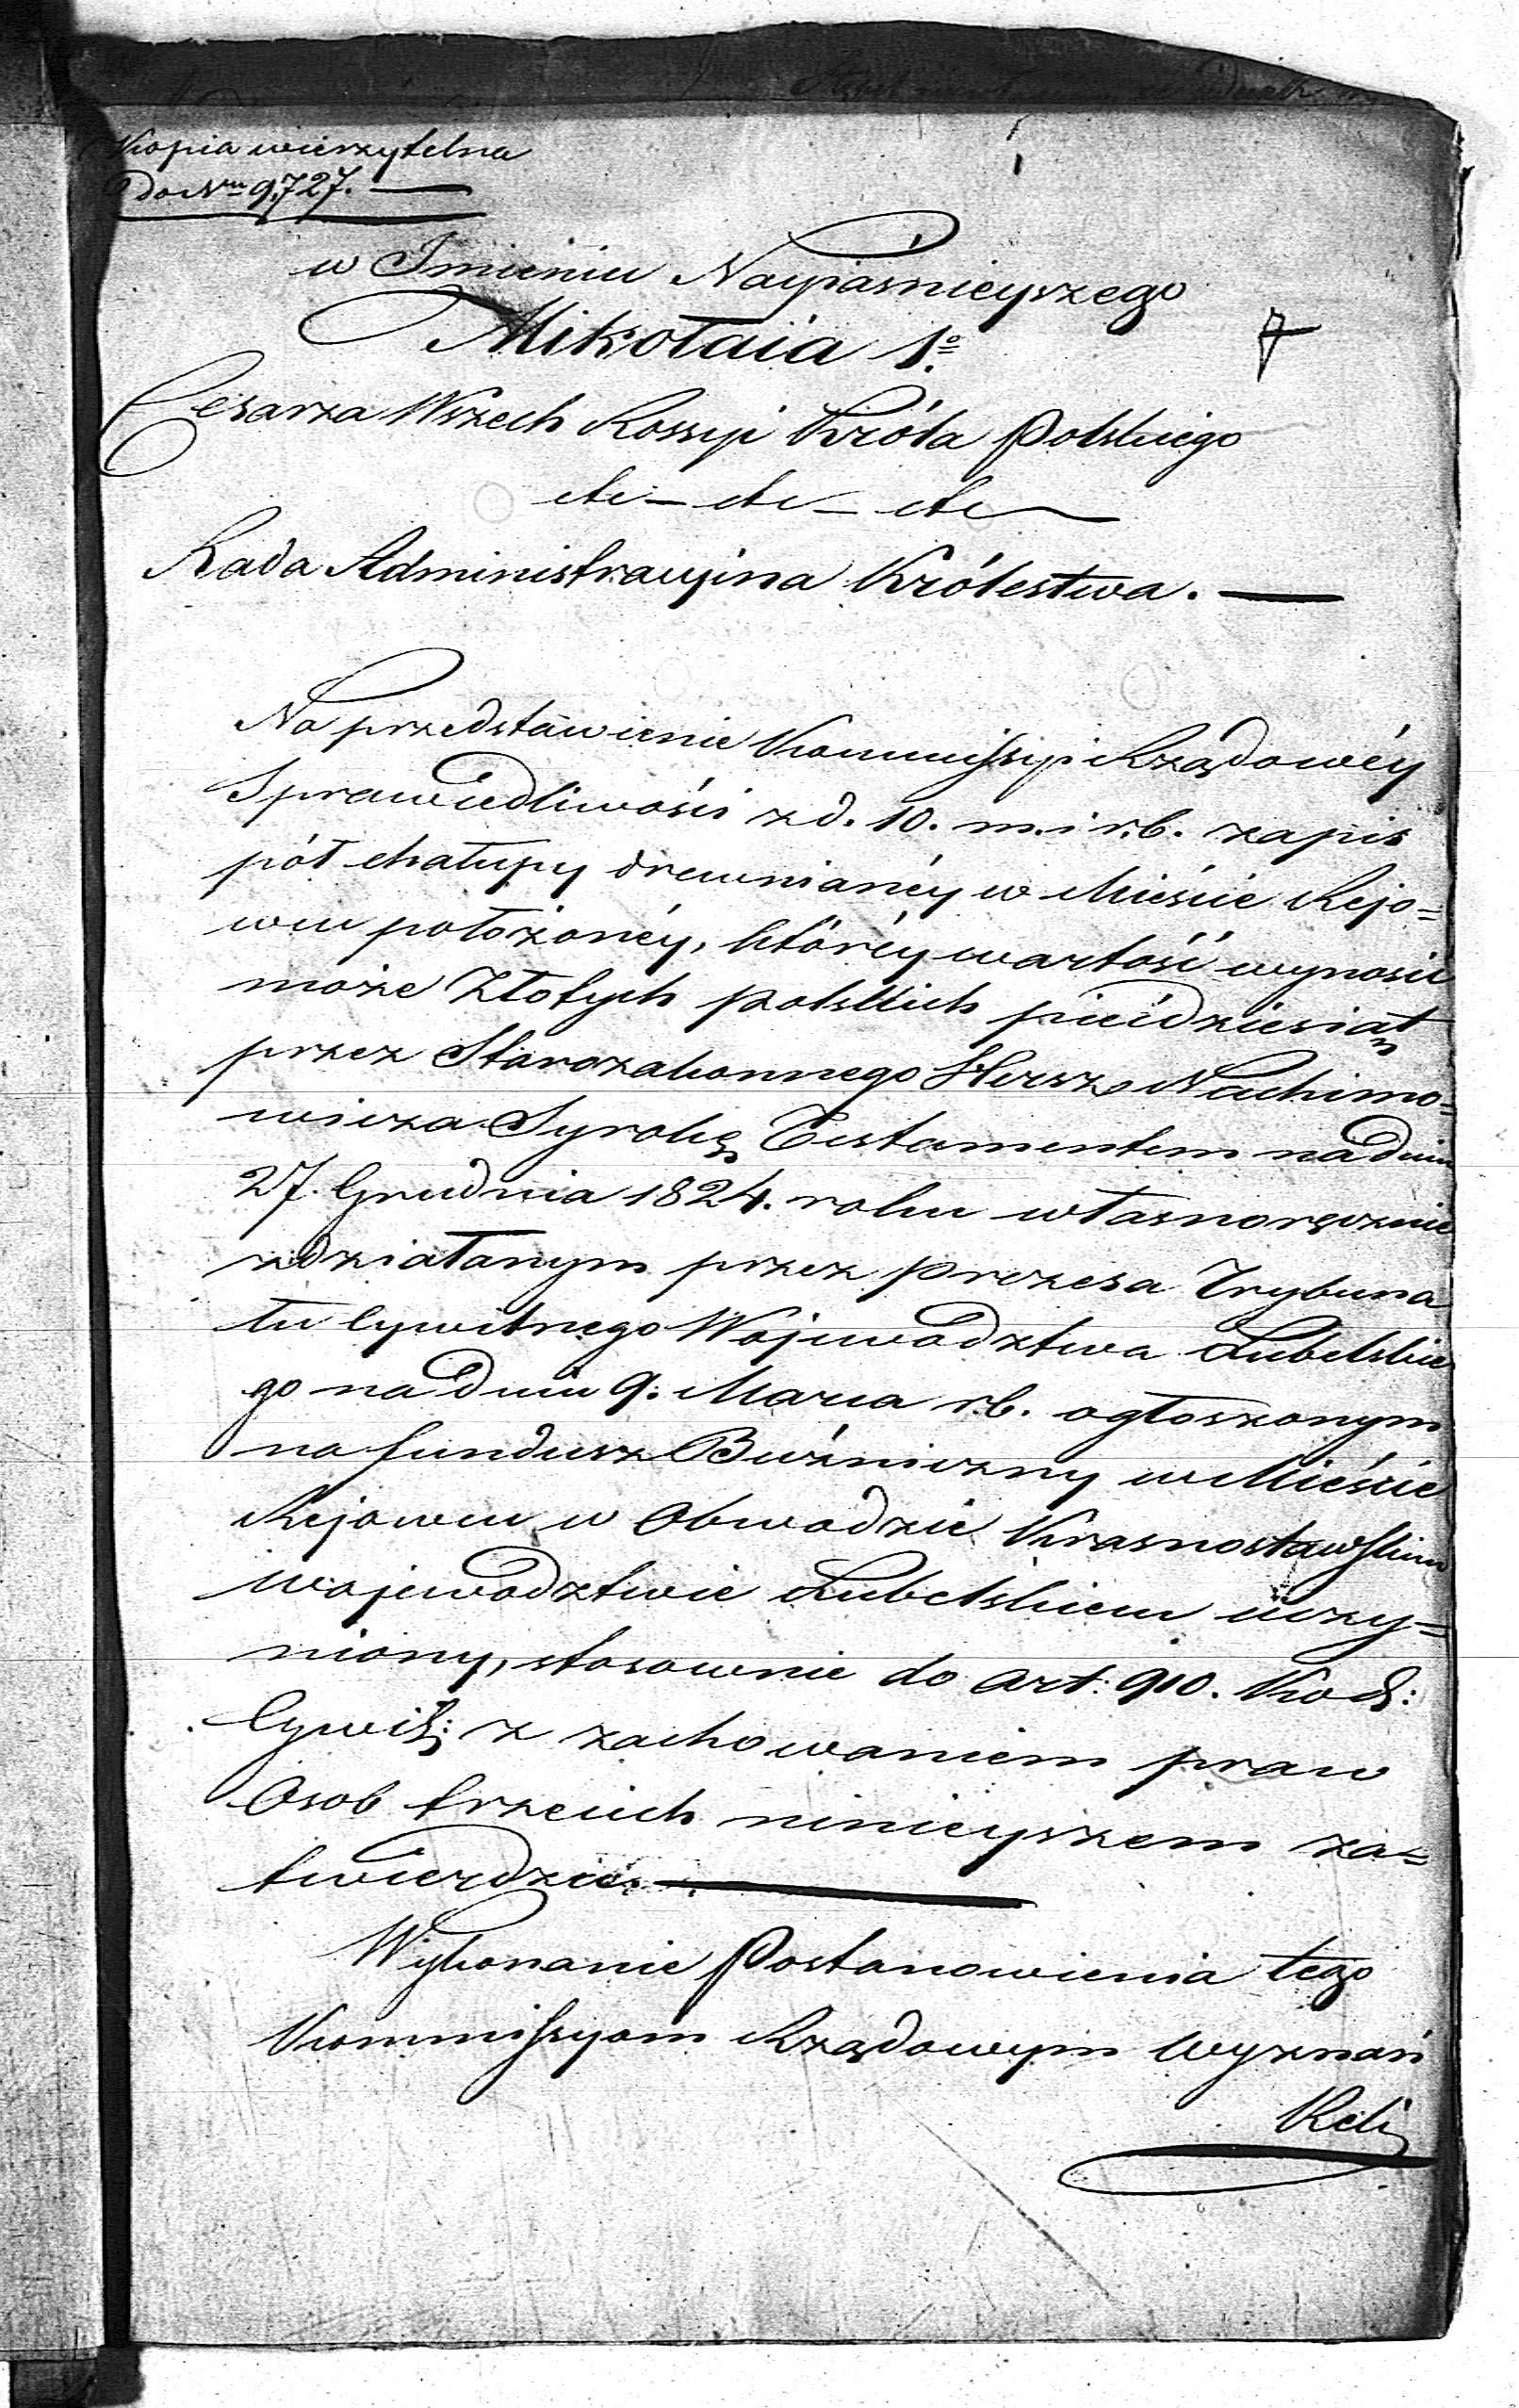 Kopia wierzytelna
Do Nru 9,727.
w Imieniu Nayiaśnieyszego
Mikołaia 1º
7
Cesarza Wszech Rossyi Króla Polskiego
etc – etc – etc
Rada Administracyina Królestwa. —
Na przedstawienie Kommissyi Rządowéy
Sprawiedliwości z d. 10. m. i r. b. zapis
pół chałupy drewnianéy w Mieście Rejo=
wcu położonéy, któréy wartość wynosić
może Złotych polskich pięćdziesiąt
przez Starozakonnego Hersz Nachimo=
wicza Syrokę Testamentem na dniu
27. Grudnia 1824. roku własnoręcznie
zdziałanym przez Prezesa Trybuna
łu Cywilnego Województwa Lubelskie
go na dniu 9. Marca r. b. ogłoszonym
na fundusz Bużniczny w Mieście
Rejowcu w Obwodzie Krasnostawskim
Województwie Lubelskiem uczy=
niony, stosownie do Art: 910. Kod:
Cywil: z zachowaniem praw
Osob trzecich ninieyszem za=
twierdza. —
Wykonanie Postanowienia tego
Kommissyom Rządowym Wyznań
Reli